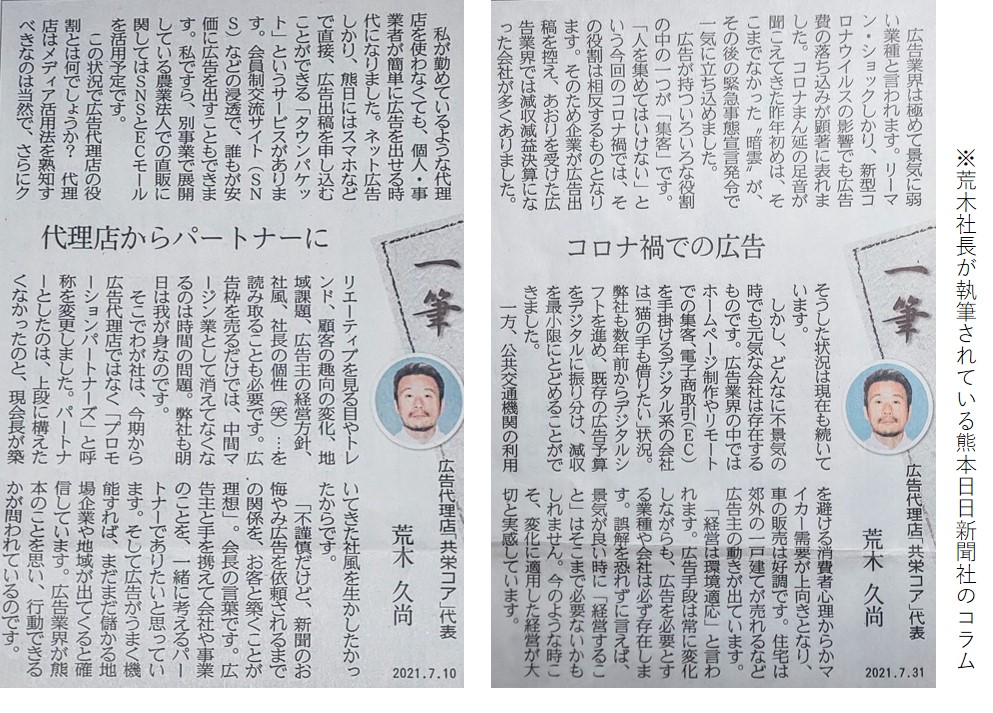 ※荒木社長が執筆されている熊本日日新聞社のコラム
一筆
コロナ禍での広告
広告代理店「共栄コア」代表
荒木 久尚
広告業界は極めて景気に弱
い業種と言われます。リーマ
ン・ショックしかり、新型コ
ロナウイルスの影響でも広告
費の落ち込みが顕著に表れま
した。コロナまん延の足音が
聞こえてきた昨年初めは、そ
こまでなかった〝暗雲〟が、
その後の緊急事態宣言発令で
一気に立ち込めました。
広告が持ついろいろな役割
の中の一つが「集客」です。
「人を集めてはいけない」と
いう今回のコロナ禍では、そ
の役割は相反するものとなり
ます。そのため企業が広告出
稿を控え、あおりを受けた広
告業界では減収減益決算にな
った会社が多くありました。
そうした状況は現在も続いて
います。
しかし、どんなに不景気の
時でも元気な会社は存在する
ものです。広告業界の中では
ホームページ制作やリモート
での集客、電子商取引(EC)
を手掛けるデジタル系の会社
は「猫の手も借りたい」状況。
弊社も数年前からデジタルシ
フトを進め、既存の広告予算
をデジタルに振り分け、減収
を最小限にとどめることがで
きました。
一方、公共交通機関の利用
を避ける消費者心理からかマ
イカー需要が上向きとなり、
車の販売は好調です。住宅は
郊外の一戸建てが売れるなど
広告主の動きが出ています。
「経営は環境適応」と言わ
れます。広告手段は常に変化
しながらも、広告を必要とす
る業種や会社は必ず存在しま
す。誤解を恐れずに言えば、
景気が良い時に「経営するこ
と」はそこまで必要ないかも
しれません。今のような時こ
そ、変化に適用した経営が大
切と実感しています。
2021.7.31
一筆
代理店からパートナーに
広告代理店「共栄コア」代表
荒木 久尚
私が勤めているような代理
店を使わなくても、個人・事
業者が簡単に広告を出せる時
代になりました。ネット広告
しかり、熊日にはスマホなど
で直接、広告出稿を申し込む
ことができる「タウンパケッ
ト」というサービスがありま
す。会員制交流サイト(SN
S)などの浸透で、誰もが安
価に広告を出すこともできま
す。私ですら、別事業で展開
している農業法人での直販に
関してはSNSとECモール
を活用予定です。
この状況で広告代理店の役
割とは何でしょうか? 代理
店はメディア活用法を熟知す
べきなのは当然で、さらにク
リエーティブを見る目やトレ
ンド、顧客の趣向の変化、地
域課題、広告主の経営方針、
社風、社長の個性(笑)…を
読み取ることも必要です。広
告枠を売るだけでは、中間マ
ージン業として消えてなくな
るのは時間の問題。弊社も明
日は我が身なのです。
そこでわが社は、今期から
広告代理店ではなく「プロモ
ーションパートナーズ」と呼
称を変更しました。パートナ
ーとしたのは、上段に構えた
くなかったのと、現会長が築
いてきた社風を生かしたかっ
たからです。
「不謹慎だけど、新聞のお
悔やみ広告を依頼されるまで
の関係を、お客と築くことが
理想」。会長の言葉です。広
告主と手を携えて会社や事業
のことを、一緒に考えるパー
トナーでありたいと思ってい
ます。そして広告がうまく機
能すれば、まだまだ儲かる地
場企業や地域が出てくると確
信しています。広告業界が熊
本のことを思い、行動できる
かが問われているのです。
2021.7.10